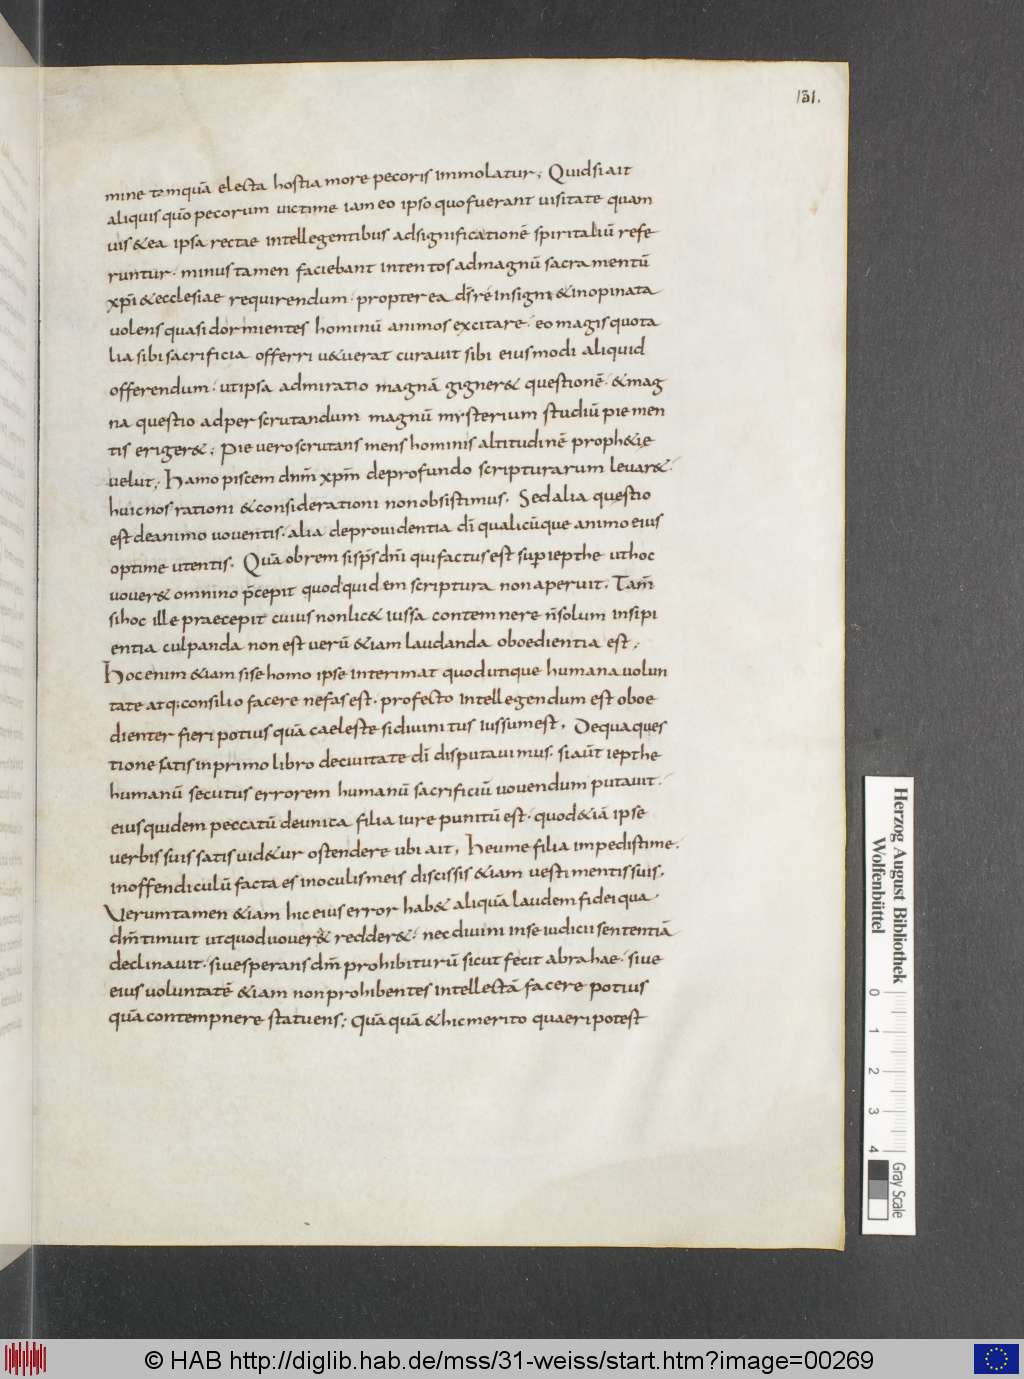 131.
mine tamquā electa hostia more pecoris immolatur; Quid si ait
aliquis quō pecorum victime iam eo ipso quo fuerant visitate quam
vis & ea ipsa rectae intellegentibus ad significationē spiritaliū refe
runtur. minus tamen faciebant intentos ad magnū sacramentū
xp̄i & ecclesiae requirendum. propterea d̄s re insigni & inopinata
volens quasi dormientes hominū animos excitare. eo magis quo ta
lia sibi sacrificia offerri v&uerat curauit sibi eiusmodi aliquid
offerendum. ut ipsa admiratio magnā gigner& questionē. & mag
na questio ad perscrutandum magnū mysterium studiū pie men
tis eriger&; Pie vero scrutans mens hominis altitudinē proph&ie
velut; Hamo piscem dn̄m xp̄m de profundo scripturarum levar&.
huic nos rationi & considerationi non obsistimus. Sed alia questio
est de animo voventis. alia de providentia d̄i qualicūque animo eius
optime utentis. Quā obrem si sp̄s dn̄i qui factus est sup iepthe ut hoc
vover& omnino p̄cepit quod quidem scriptura non aperuit. Tam̄
si hoc ille praecepit cuius non lic& iussa contemnere n̄ solum insipi
entia culpanda non est verū &iam laudanda oboedientia est;
Hoc enim &iam si se homo ipse interimat quod utique humana volun
tate atq; consilio facere nefas est. profecto intellegendum est oboe
dienter fieri potius quā caeleste si divinitus iussum est. De qua ques
tione satis in primo libro de civitate d̄i disputavimus. si aūt iepthe
humanū secutus errorem humanū sacrificiū vovendum putavit.
eius quidem peccatū de unica filia iure punitū est. quod &iā ipse
verbis suis satis vid&ur ostendere ubi ait, Heu me filia impedisti me.
in offendiculū facta es in oculis meis discissis &iam vestimentis suis.
Verum tamen &iam hic eius error hab& aliquā laudem fidei qua
dm̄ timuit ut quod vover& redder&. nec divini in se iudicii sententiā
declinavit. sive sperans dm̄ prohibiturū sicut fecit abrahae. sive
eius voluntatē &iam non prohibentes intellectā facere potius
quā contempnere statuens; Quā quā & hic merito quaeri potest
Herzog August Bibliothek
Wolfenbüttel
0 1 2 3 4
Gray Scale
© HAB http://diglib.hab.de/mss/31-weiss/start.htm?image=00269